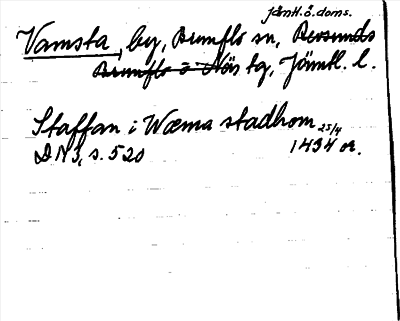 Jämtl. ö. doms.
Vamsta, by, Brunflo sn, Revsunds
Brunflo o. Näs tg, Jämtl. l.
Staffan i Wæma stadhom 25/4
DN 3, s. 520 1434 or.